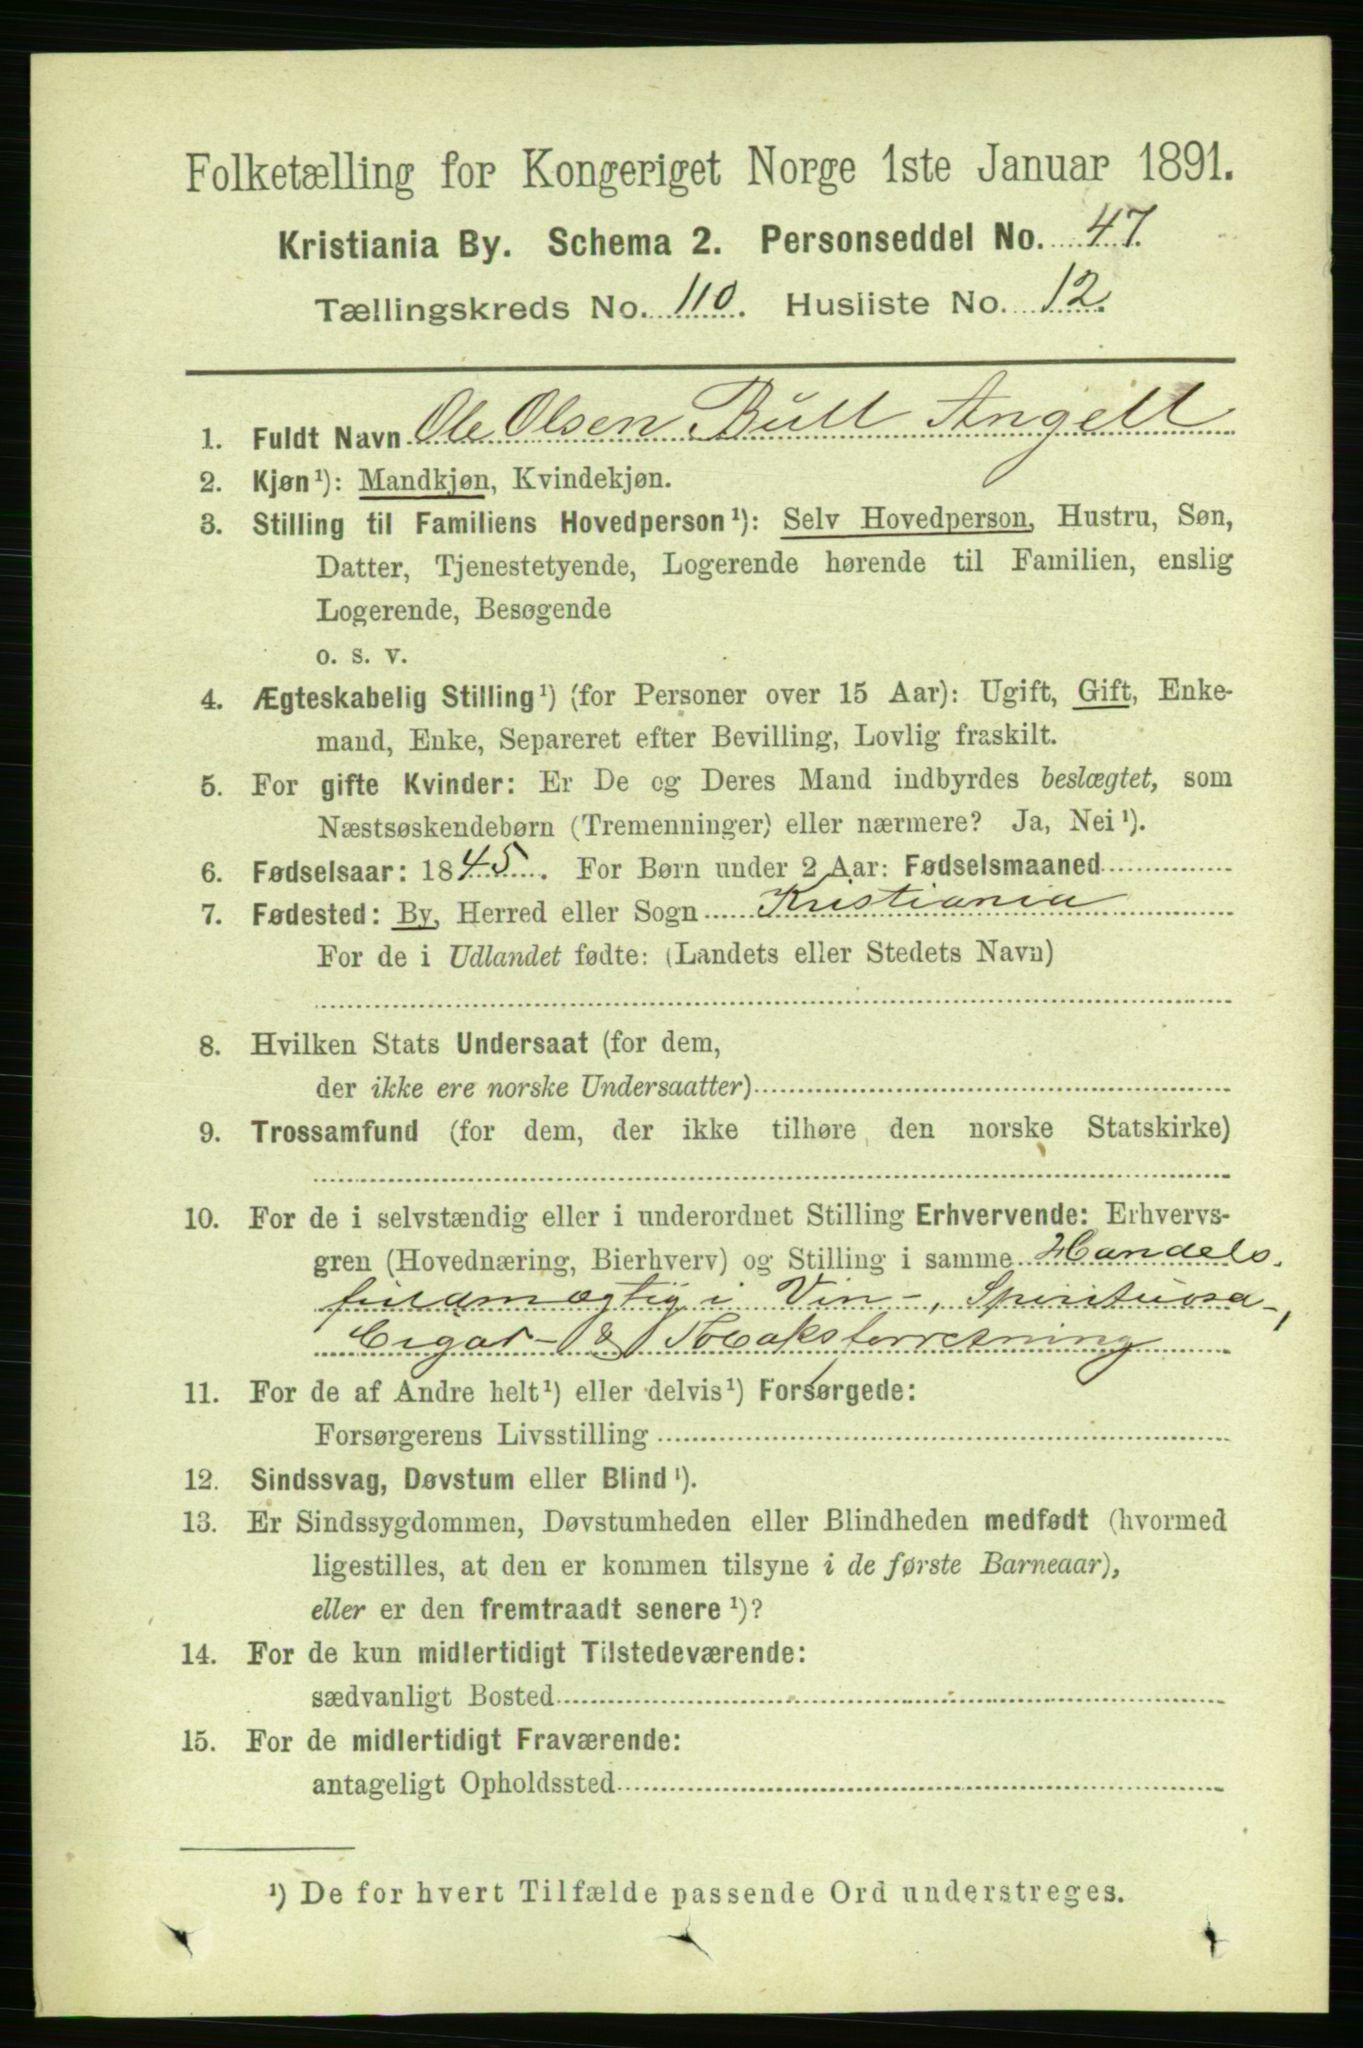 Folketælling for Kongeriget Norge 1ste Januar 1891.
Kristiania By. Schema 2. Personseddel No. 47.
Tællingskreds No. 110. Husliste No. 12.
1. Fuldt Navn Ole Olsen Bull Angell
2. Kjøn¹): Mandkjøn, Kvindekjøn.
3. Stilling til Familiens Hovedperson¹): Selv Hovedperson, Hustru, Søn,
Datter, Tjenestetyende, Logerende hørende til Familien, enslig
Logerende, Besøgende
o. s. v.
4. Ægteskabelig Stilling¹) (for Personer over 15 Aar): Ugift, Gift, Enke-
mand, Enke, Separeret efter Bevilling, Lovlig fraskilt.
5. For gifte Kvinder: Er De og Deres Mand indbyrdes beslægtet, som
Næstsøskendebørn (Tremenninger) eller nærmere? Ja, Nei¹).
6. Fødselsaar: 1845. For Børn under 2 Aar: Fødselsmaaned
7. Fødested: By, Herred eller Sogn Kristiania
For de i Udlandet fødte: (Landets eller Stedets Navn)
8. Hvilken Stats Undersaat (for dem,
der ikke ere norske Undersaatter)
9. Trossamfund (for dem, der ikke tilhøre den norske Statskirke)
10. For de i selvstændig eller i underordnet Stilling Erhvervende: Erhvervs-
gren (Hovednæring, Bierhverv) og Stilling i samme Handels-
fuldmægtig i Vin-, Spirituosa-,
Cigar- & Tobaksforretning
11. For de af Andre helt¹) eller delvis¹) Forsørgede:
Forsørgerens Livsstilling
12. Sindssvag, Døvstum eller Blind¹).
13. Er Sindssygdommen, Døvstumheden eller Blindheden medfødt (hvormed
ligestilles, at den er kommen tilsyne i de første Barneaar),
eller er den fremtraadt senere¹)?
14. For de kun midlertidigt Tilstedeværende:
sædvanligt Bosted
15. For de midlertidigt Fraværende:
antageligt Opholdssted
¹) De for hvert Tilfælde passende Ord understreges.